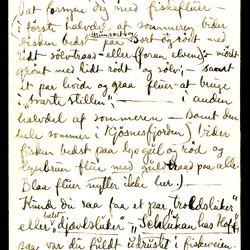 at forsyne dig med fiskefluer -
i første halvdel af sommeren bider
fisken bedst paa sort og rødt med
lidt sølvtraad - eller (foran elven) - mørkt
grønt med lidt rødt og sølv; - samt
et par hvide og graa fluer - at bruge
i "svarte stillen"; - i anden
halvdel af sommeren - (samt den
hele sommer i Kjøsnesfjorden) bider
fisken bedst paa lys gul og rød og
lysebrun flue med guldtraad paa alle
Blaa fluer nytter ikke her. -
Kunde du raa faa et par "troldsluker"
eller "djævelsluker"
saa var du fuldt udrustet fiskeveien